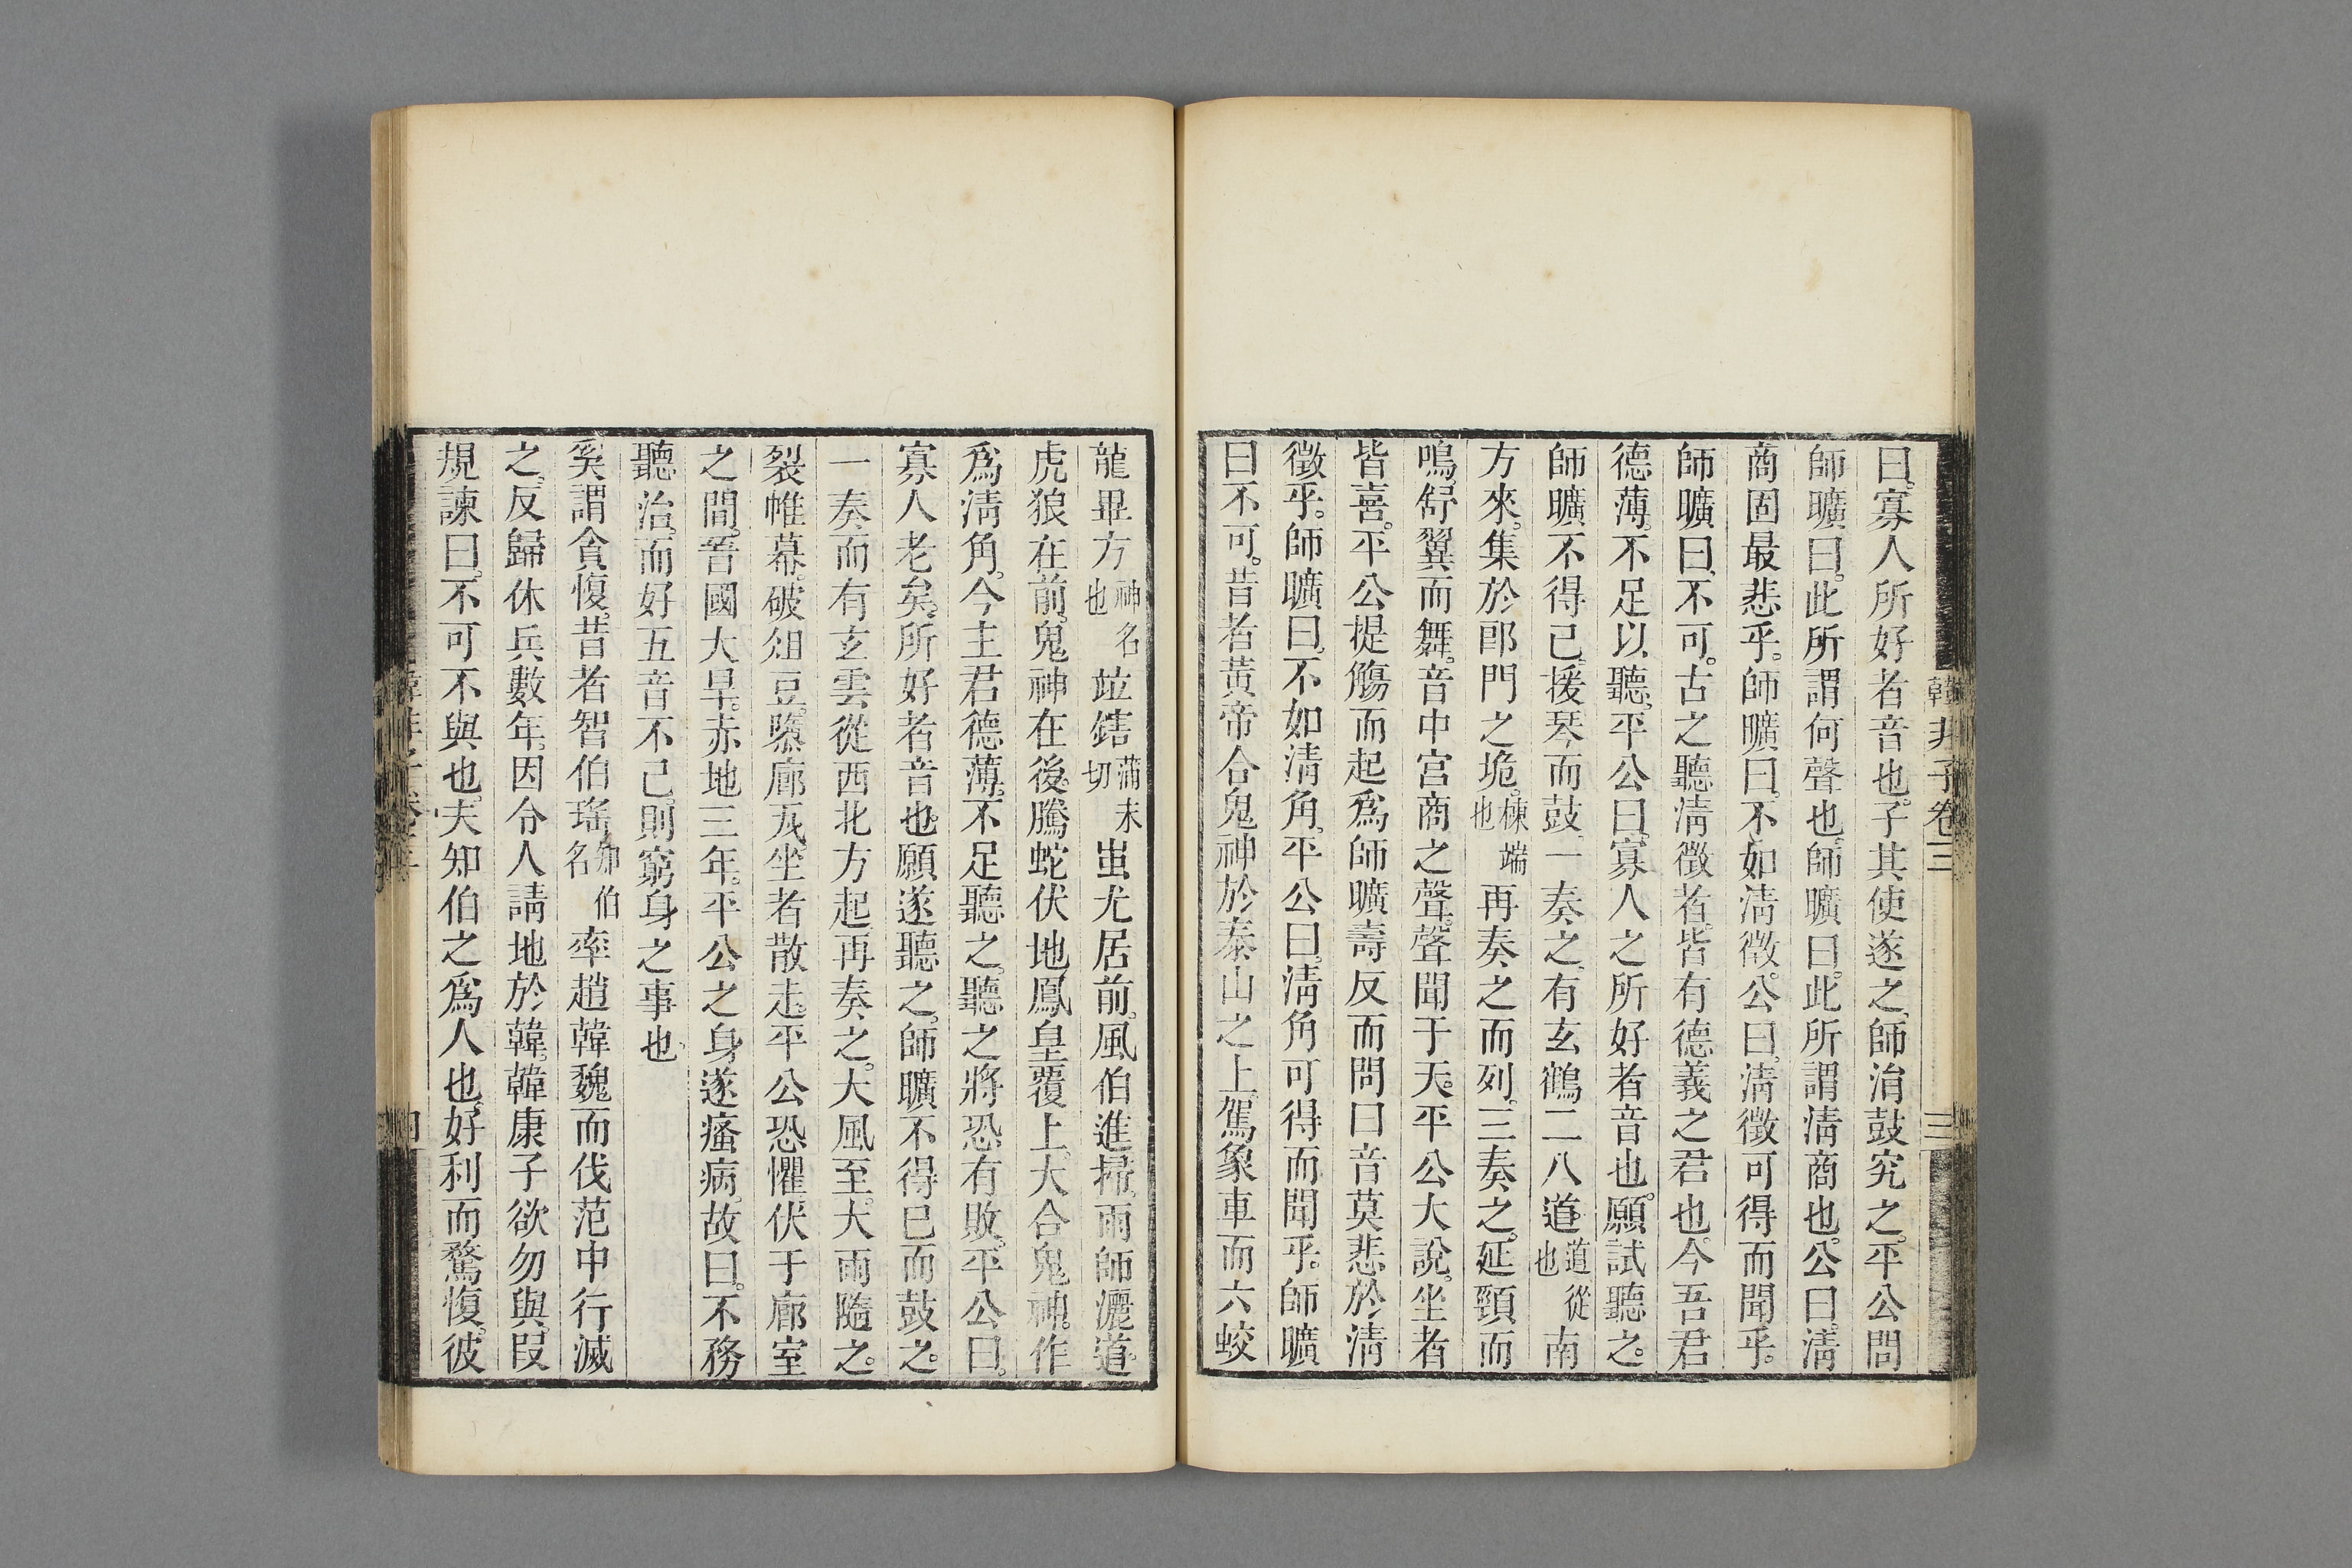 韓非子卷三
三
曰。寡人所好者音也。子其使遂之。師涓鼓究之。平公問
師曠曰。此所謂何聲也。師曠曰。此所謂清商也。公曰。清
商固最悲乎。師曠曰。不如清徵。公曰。清徵可得而聞乎。
師曠曰。不可。古之聽清徵者。皆有德義之君也。今吾君
德薄。不足以聽。平公曰。寡人之所好者音也。願試聽之。
師曠不得已。援琴而鼓。一奏之。有玄鶴二八道。道從也南
方來。集於郎門之垝。棟端也再奏之而列。三奏之。延頸而
鳴。舒翼而舞。音中宮商之聲。聲聞于天。平公大說。坐者
皆喜。平公提觴而起爲師曠壽。反而問曰。音莫悲於清
徵乎。師曠曰。不如清角。平公曰。清角可得而聞乎。師曠
曰不可。昔者黃帝合鬼神於泰山之上。駕象車而六蛟
龍。畢方神名也竝鎋蒲末切蚩尤居前。風伯進掃。雨師灑道。
虎狼在前。鬼神在後。騰蛇伏地。鳳皇覆上。大合鬼神。作
爲清角。今主君德薄。不足聽之。聽之將恐有敗。平公曰。
寡人老矣。所好者音也。願遂聽之。師曠不得已而鼓之。
一奏而有玄雲從西北方起。再奏之。大風至。大雨隨之。
裂帷幕。破俎豆。隳廊瓦。坐者散走。平公恐懼伏于廊室
之間。晉國大旱。赤地三年。平公之身遂癃病。故曰。不務
聽治。而好五音不已。則窮身之事也。
奚謂貪愎。昔者智伯瑤知伯名率趙韓魏而伐范中行滅
之。反歸休兵數年。因令人請地於韓。韓康子欲勿與。段
規諫曰。不可不與也。夫知伯之爲人也。好利而驁愎。彼